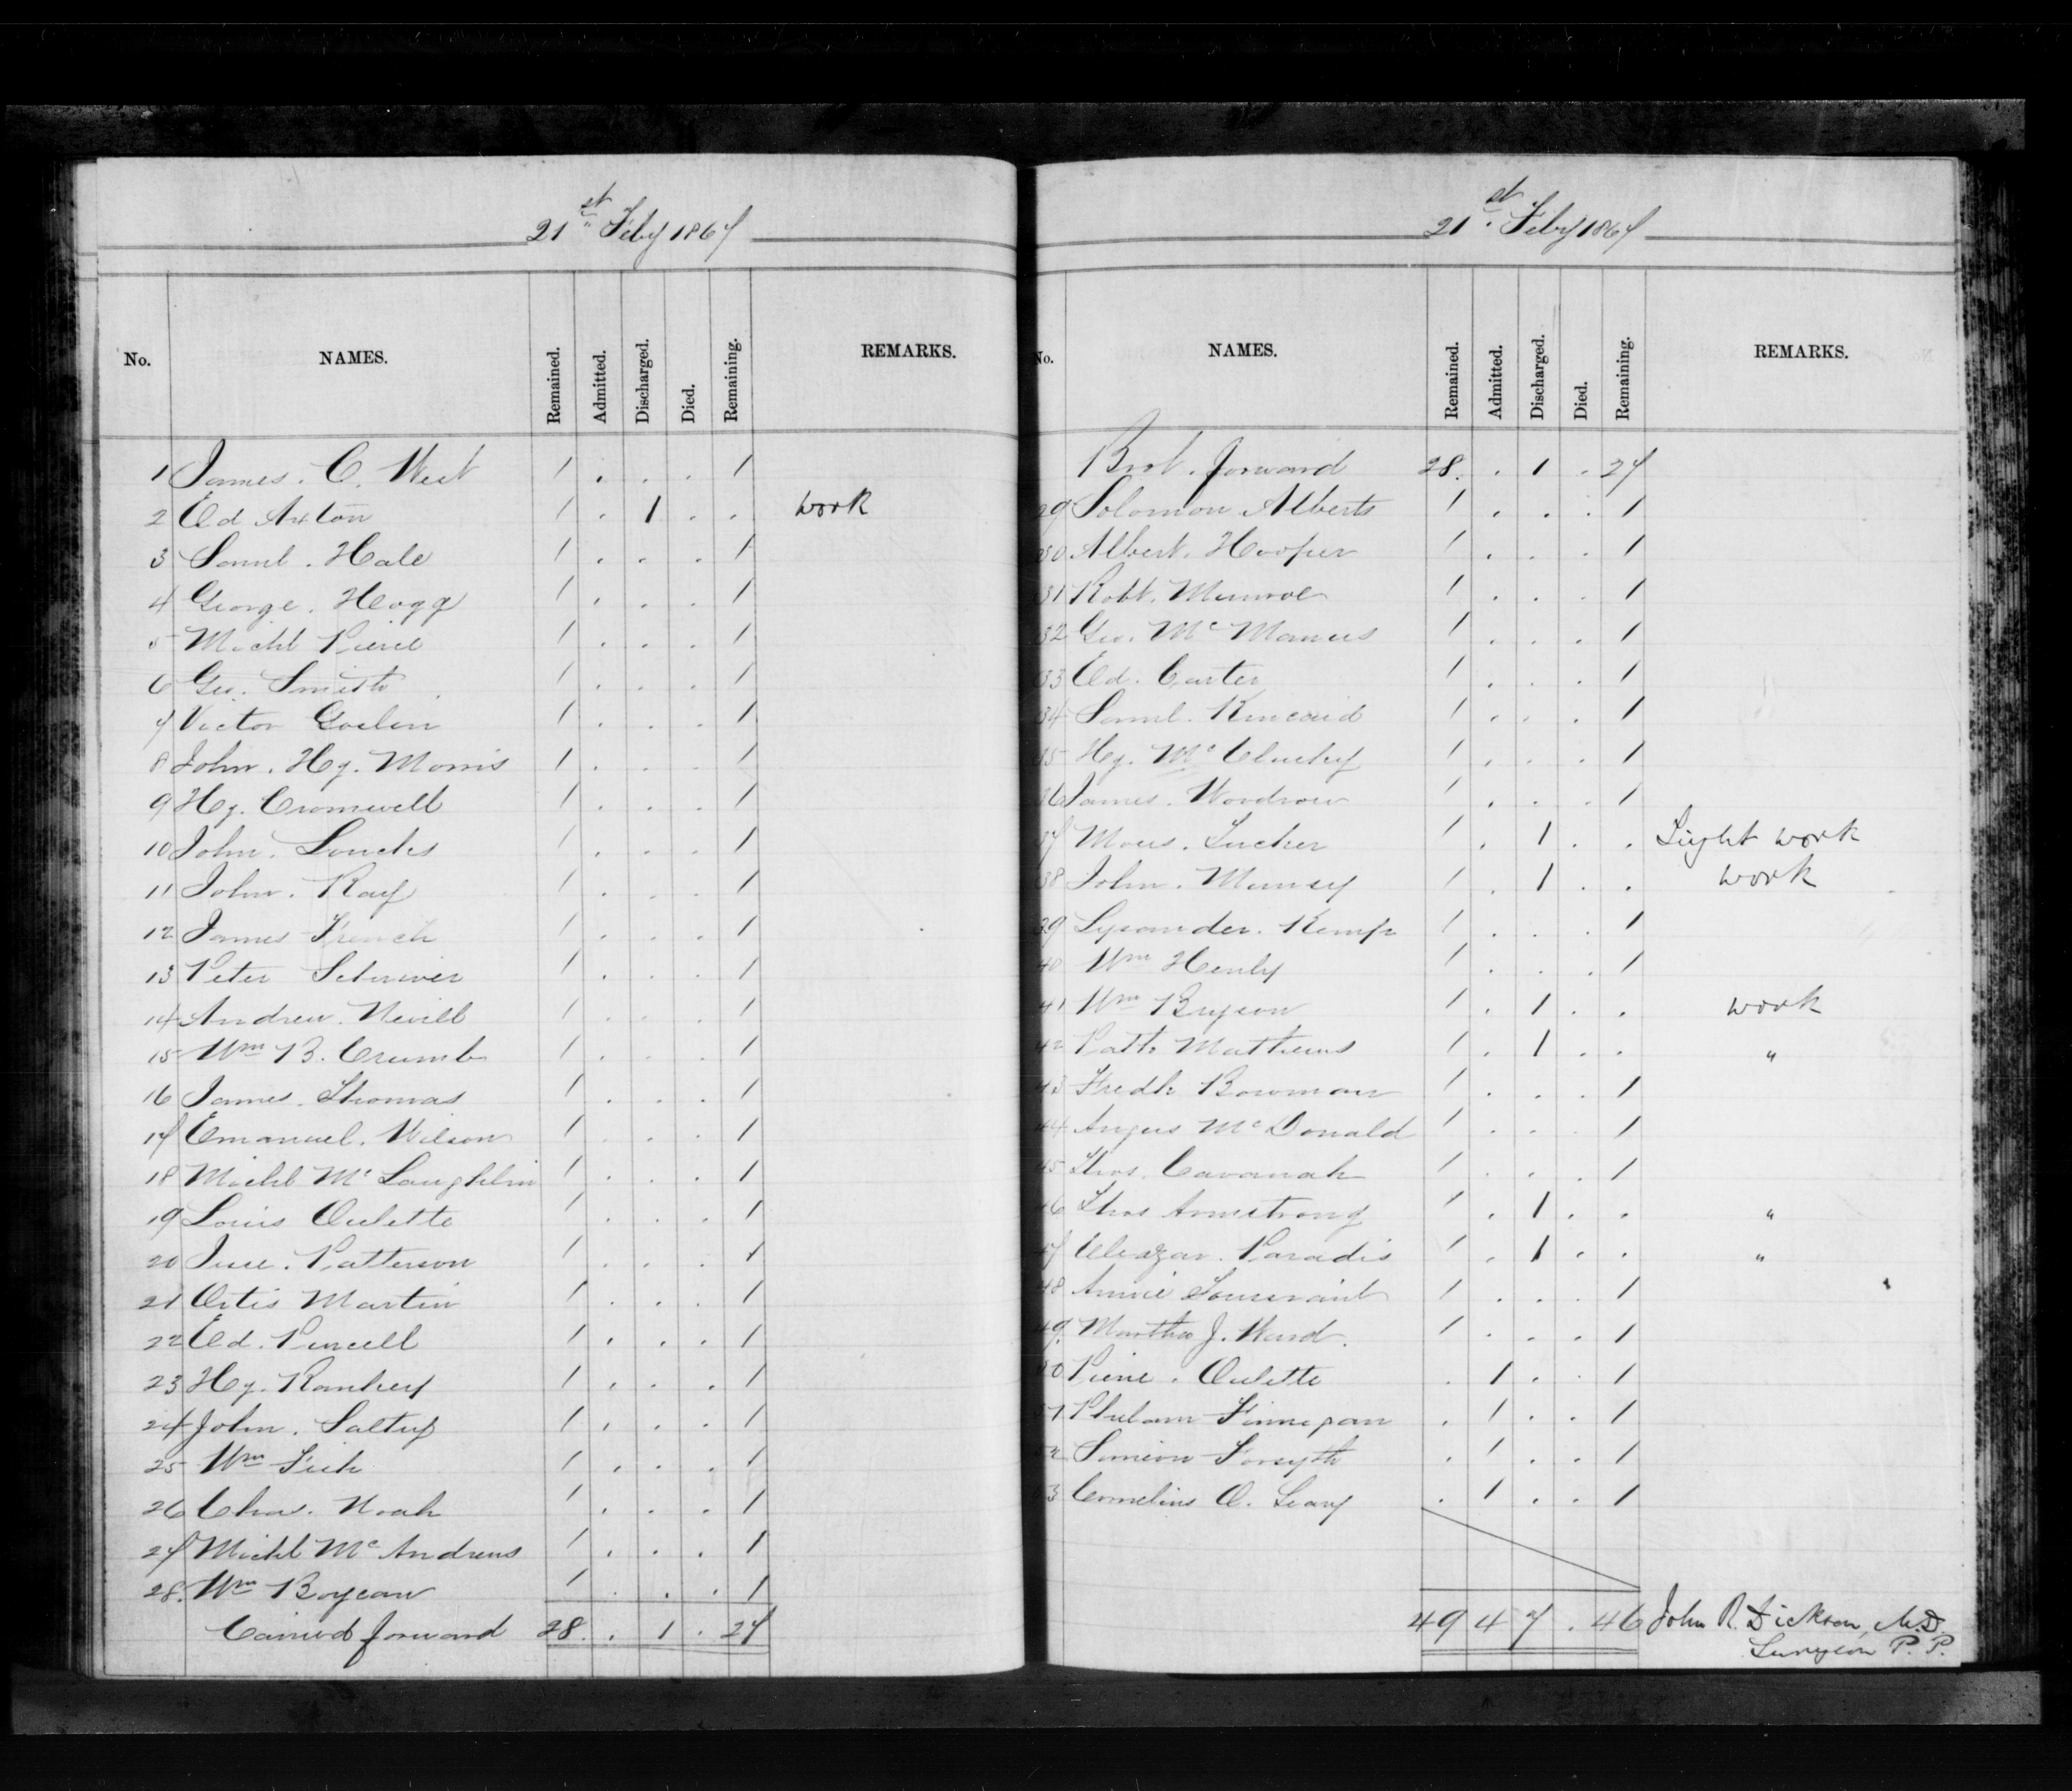 21st Feby 1867
No. NAMES. Remained. Admitted. Discharged. Died. Remaining. REMARKS.
1 James. C. West 1 . . . 1
2 Ed Axton 1 . 1 . . work
3 Saml. Hale 1 . . . 1
4 George. Hogg 1 . . . 1
5 Michl Pierce 1 . . . 1
6 Geo. Smith 1 . . . 1
7 Victor Goslin 1 . . . 1
8 John. Hy. Morris 1 . . . 1
9 Hy. Cromwell 1 . . . 1
10 John. Loucks 1 . . . 1
11 John. Ray 1 . . . 1
12 James French 1 . . . 1
13 Peter Scriver 1 . . . 1
14 Andrew. Nevill 1 . . . 1
15 Wm B. Crumb 1 . . . 1
16 James. Thomas 1 . . . 1
17 Emanuel. Wilson 1 . . . 1
18 Michl Mc Laughlin 1 . . . 1
19 Louis Oulette 1 . . . 1
20 Jesse. Patterson 1 . . . 1
21 Ortis Martin 1 . . . 1
22 Ed. Purcell 1 . . . 1
23 Hy. 1 . . . 1
24 John. 1 . . . 1
25 Wm 1 . . . 1
26 Chas. Noah 1 . . . 1
27 Michl Mc Andrews 1 . . . 1
28. Wm Boyean 1 . . . 1
Carried forward 28 . 1 . 27
21st Feby 1867
No. NAMES. Remained. Admitted. Discharged. Died. Remaining. REMARKS.
Brot. forward 28. . 1 . 27
29 Solomon Alberts 1 . . . 1
30 Albert. Hooper 1 . . . 1
31 Robt. Munroe 1 . . . 1
32 Geo. Mc Manus 1 . . . 1
33 Ed. Carter 1 . . . 1
34 Saml. Kincaid 1 . . . 1
35 Hy. Mc Cluskey 1 . . . 1
36 James. Woodrow 1 . . . 1
37 Moses. Tucker 1 . 1 . . Light work
38 John. Munsey 1 . 1 . . work
39 Lysander. Kemp 1 . . . 1
40 Wm Henly 1 . . . 1
41 Wm Bryson 1 . 1 . . work
42 Patk Mathews 1 . 1 . . "
43 Fredk Bowman 1 . . . 1
44 Angus Mc Donald 1 . . . 1
45 Thos. Cavanah 1 . . . 1
46 Thos Armstrong 1 . 1 . . "
47 Eleazar. Paradis 1 . 1 . . "
48 Annie 1 . . . 1
49. Martha J. Ward. 1 . . . 1
50 Pierre. Oulette . 1 . . 1
51 Phelam Finnegan . 1 . . 1
52 Simeon Forsyth . 1 . . 1
53 Cornelius O. Leary . 1 . . 1
49 4 7 . 46 John R. Dickson, M.D.
Surgeon P. P.